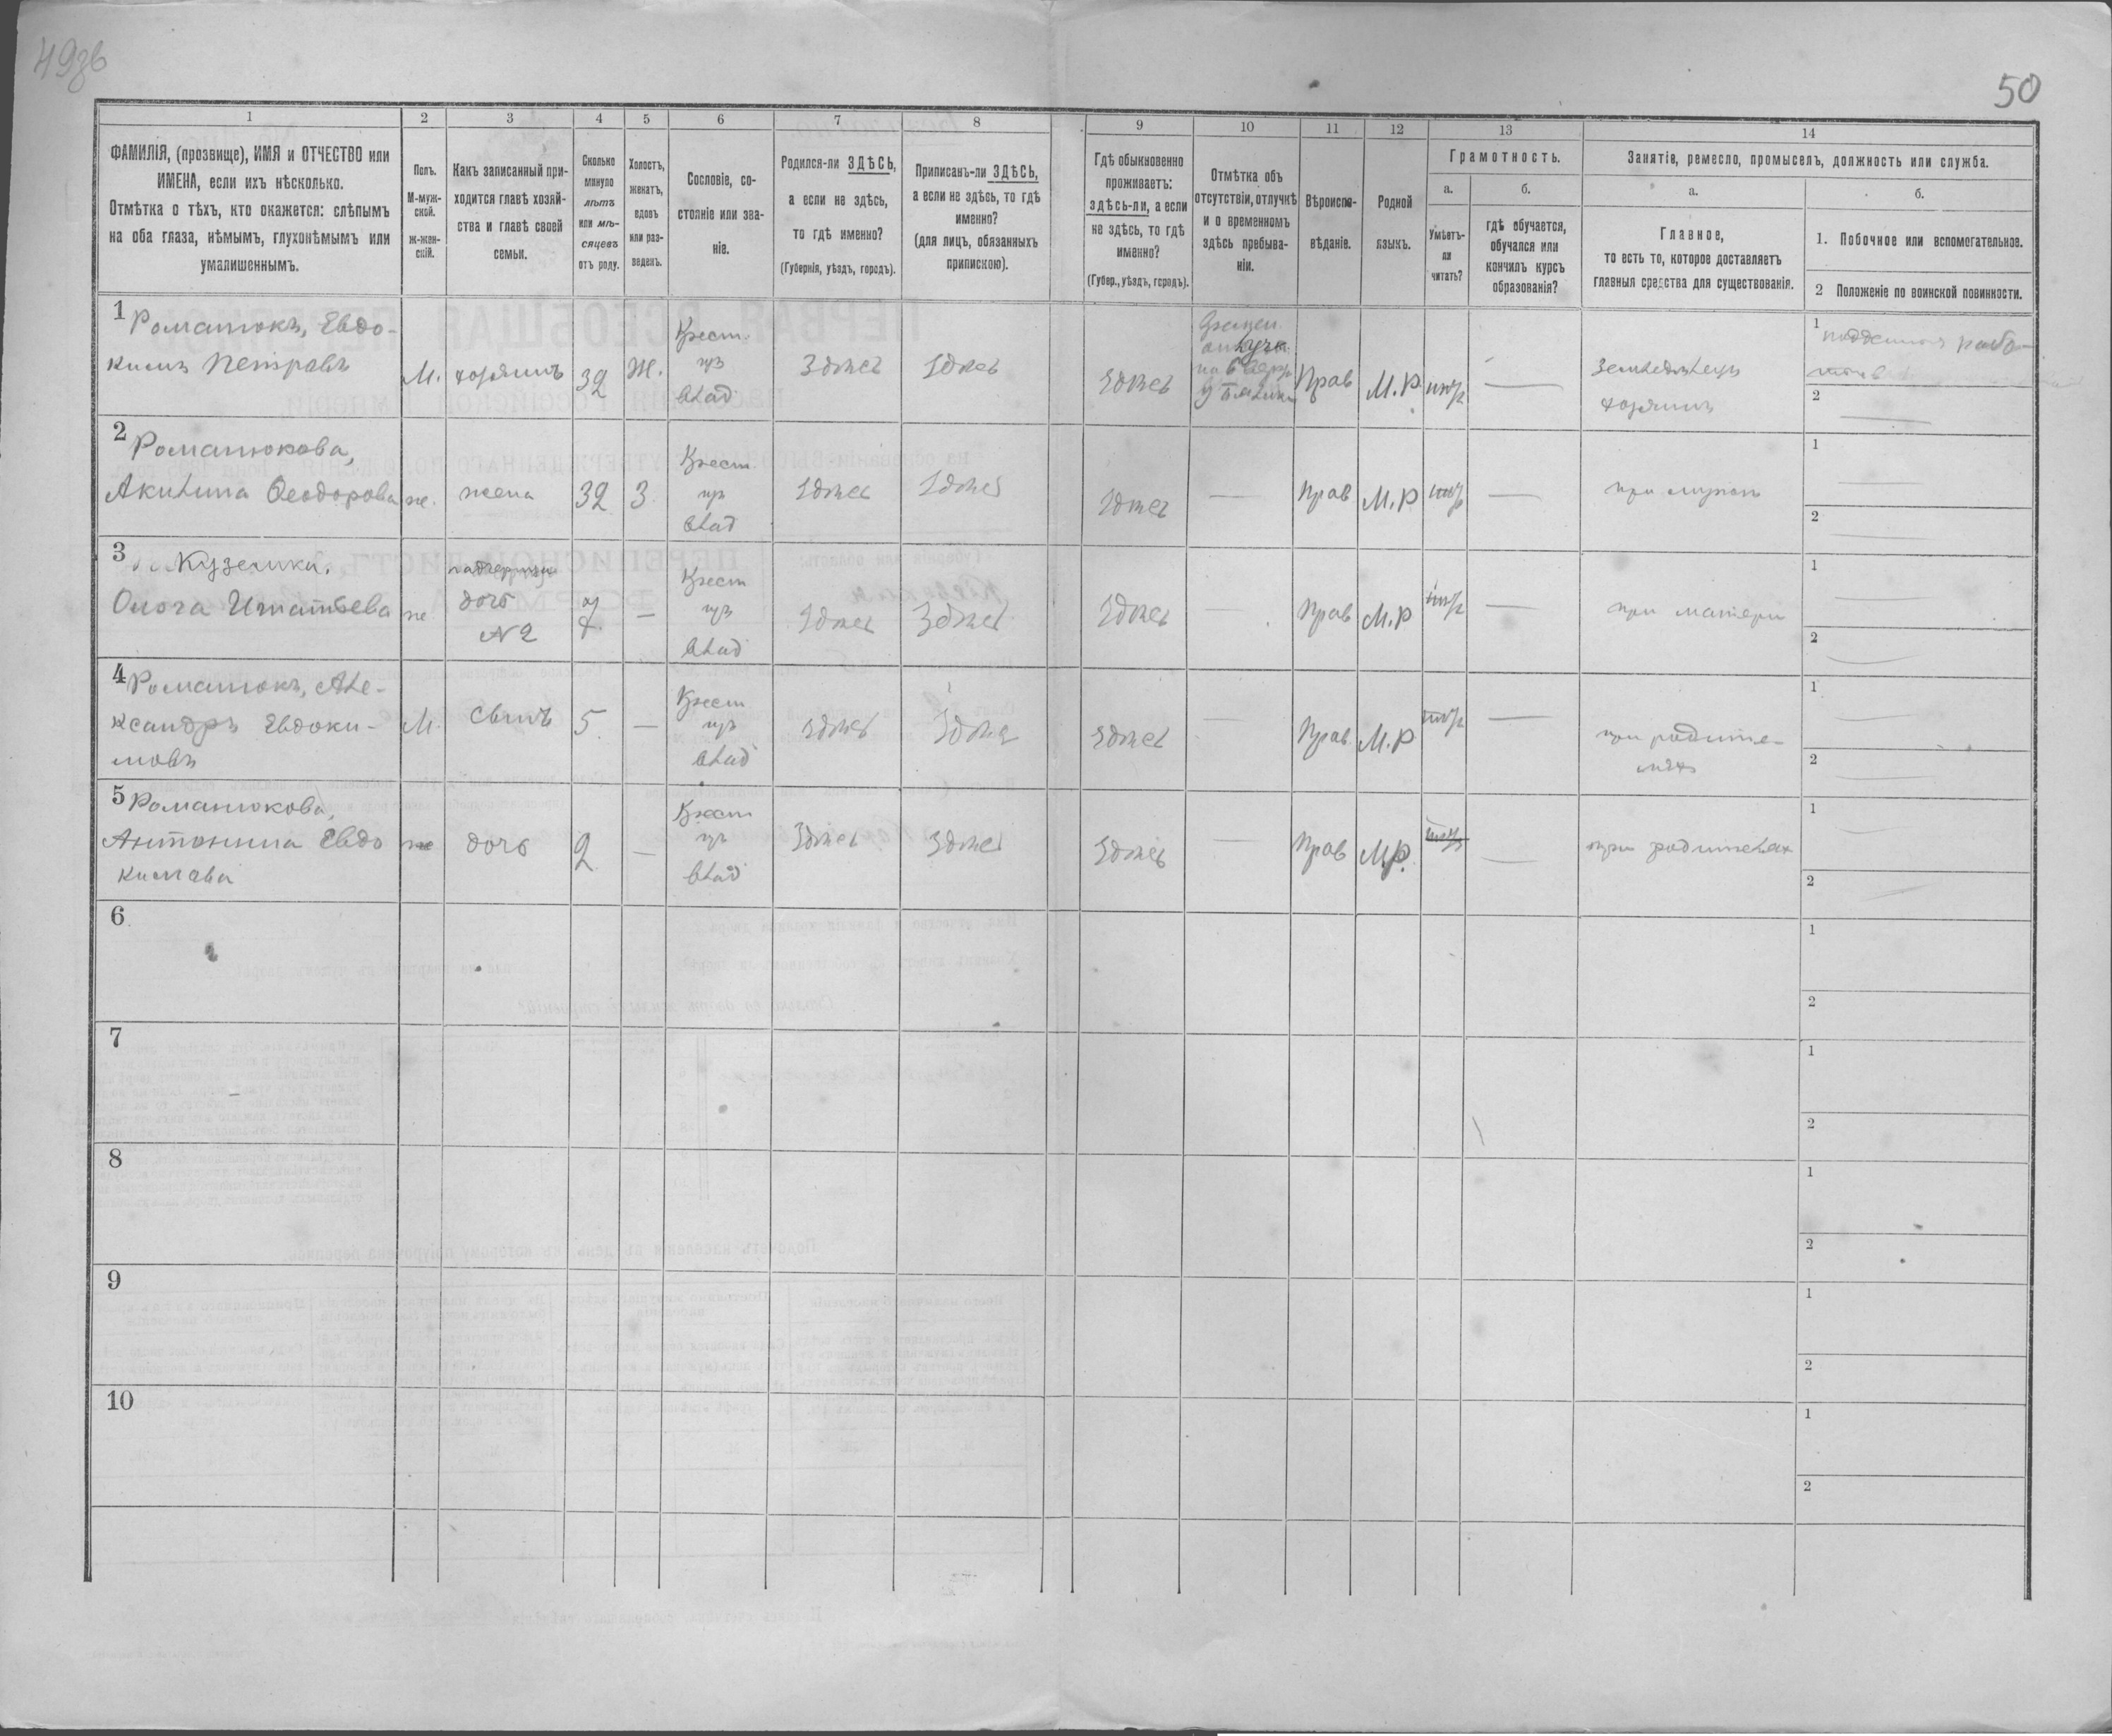 49зв
50
1
2
3
4
5
6
7
8
9
10
11
12
13
14
ФАМИЛІЯ, (прозвище), ИМЯ и ОТЧЕСТВО или
ИМЕНА, если ихъ нѣсколько.
Отмѣтка о тѣхъ, кто окажется: слѣпымъ
на оба глаза, нѣмымъ, глухонѣмымъ или
умалишеннымъ.
Полъ.
М-муж-
ской.
ж-жен-
скій.
Какъ записанный при-
ходится главѣ хозяй-
ства и главѣ своей
семьи.
Сколько
минуло
лѣтъ
или мѣ-
сяцевъ
отъ роду.
Холостъ,
женатъ,
вдовъ
или раз-
веденъ.
Сословіе, со-
стояніе или зва-
ніе.
Родился-ли ЗДѢСЬ,
а если не здѣсь,
то гдѣ именно?
(Губернія, уѣздъ, городъ).
Приписанъ-ли ЗДѢСЬ,
а если не здѣсь, то гдѣ
именно?
(для лицъ, обязанныхъ
припискою).
Гдѣ обыкновенно
проживаетъ:
здѣсь-ли, а если
не здѣсь, то гдѣ
именно?
(Губер., уѣздъ, городъ).
Отмѣтка объ
отсутствіи, отлучкѣ
и о временномъ
здѣсь пребыва-
ніи.
Вѣроиспо-
вѣданіе.
Родной
языкъ.
Грамотность.
а.
Умѣетъ-
ли
читать?
б.
гдѣ обучается,
обучался или
кончилъ курсъ
образованія?
Занятіе, ремесло, промыселъ, должность или служба.
а.
Главное,
то есть то, которое доставляетъ
главныя средства для существованія.
б.
1. Побочное или вспомогательное.
2 Положеніе по воинской повинности.
1
Романюкъ, Евдо-
кимъ Петровъ
М.
хозяинъ
32
Ж.
Крест.
изъ
влад
Здѣсь
Здѣсь
Здѣсь
Времен.
отлуч.
Прав
М.Р
нѣтъ
Земледѣлецъ
хозяинъ
1
2
2
Романюкова,
Акилина Ѳеодорова
ж.
жена
32
З.
Крест.
изъ
влад
Здѣсь
Здѣсь
Здѣсь
Прав
М.Р
нѣтъ
при мужѣ
1
2
3
Кузёмка,
Ольга Игнатьева
ж
падчерица
дочь
N 2
7
Крест
изъ
влад
Здѣсь
Здѣсь
Здѣсь
Прав
М.Р
нѣтъ
при матери
1
2
4
Романюкъ, Але-
ксандръ Евдоки-
мовъ
М.
сынъ
5
Крест
изъ
влад
Здѣсь
Здѣсь
Здѣсь
Прав.
М.Р
нѣтъ
при родите-
ляхъ
1
2
5
Романюкова,
Антонина Евдо
кимова
ж
дочь
2
Крест
изъ
влад
Здѣсь
Здѣсь
Здѣсь
Прав
М.Р.
нѣтъ
при родителях
1
2
6
1
2
7
1
2
8
1
2
9
1
2
10
1
2